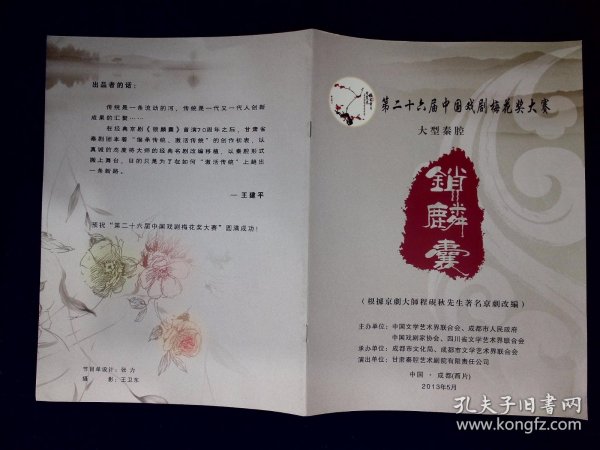 出品者的话：
传统是一条流动的河，传统是一代又一代人创新
成果的汇聚……
在经典京剧《锁麟囊》首演70周年之后，甘肃省
秦剧团本着“继承传统、激活传统”的创作初衷，以
真诚的态度将大师的经典名剧改编移植，以秦腔形式
搬上舞台，目的只是为了在如何“激活传统”上趟出
一条新路。
—王建平
预祝“第二十六届中国戏剧梅花奖大赛”圆满成功！
节目单设计：张力
摄　影：王卫东
第二十六届中国戏剧梅花奖大赛
大型秦腔
鎖麟囊
（根據京劇大師程硯秋先生著名京劇改編）
主办单位：中国文学艺术界联合会、成都市人民政府
中国戏剧家协会、四川省文学艺术界联合会
承办单位：成都市文化局、成都市文学艺术界联合会
演出单位：甘肃秦腔艺术剧院有限责任公司
中国·成都(西片)
2013年5月
孔夫子旧书网
www.kongfz.com